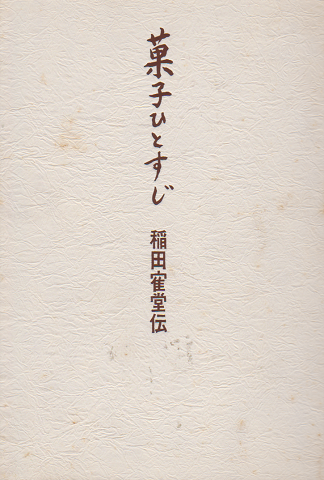 菓子ひとすじ
稲田寉堂伝